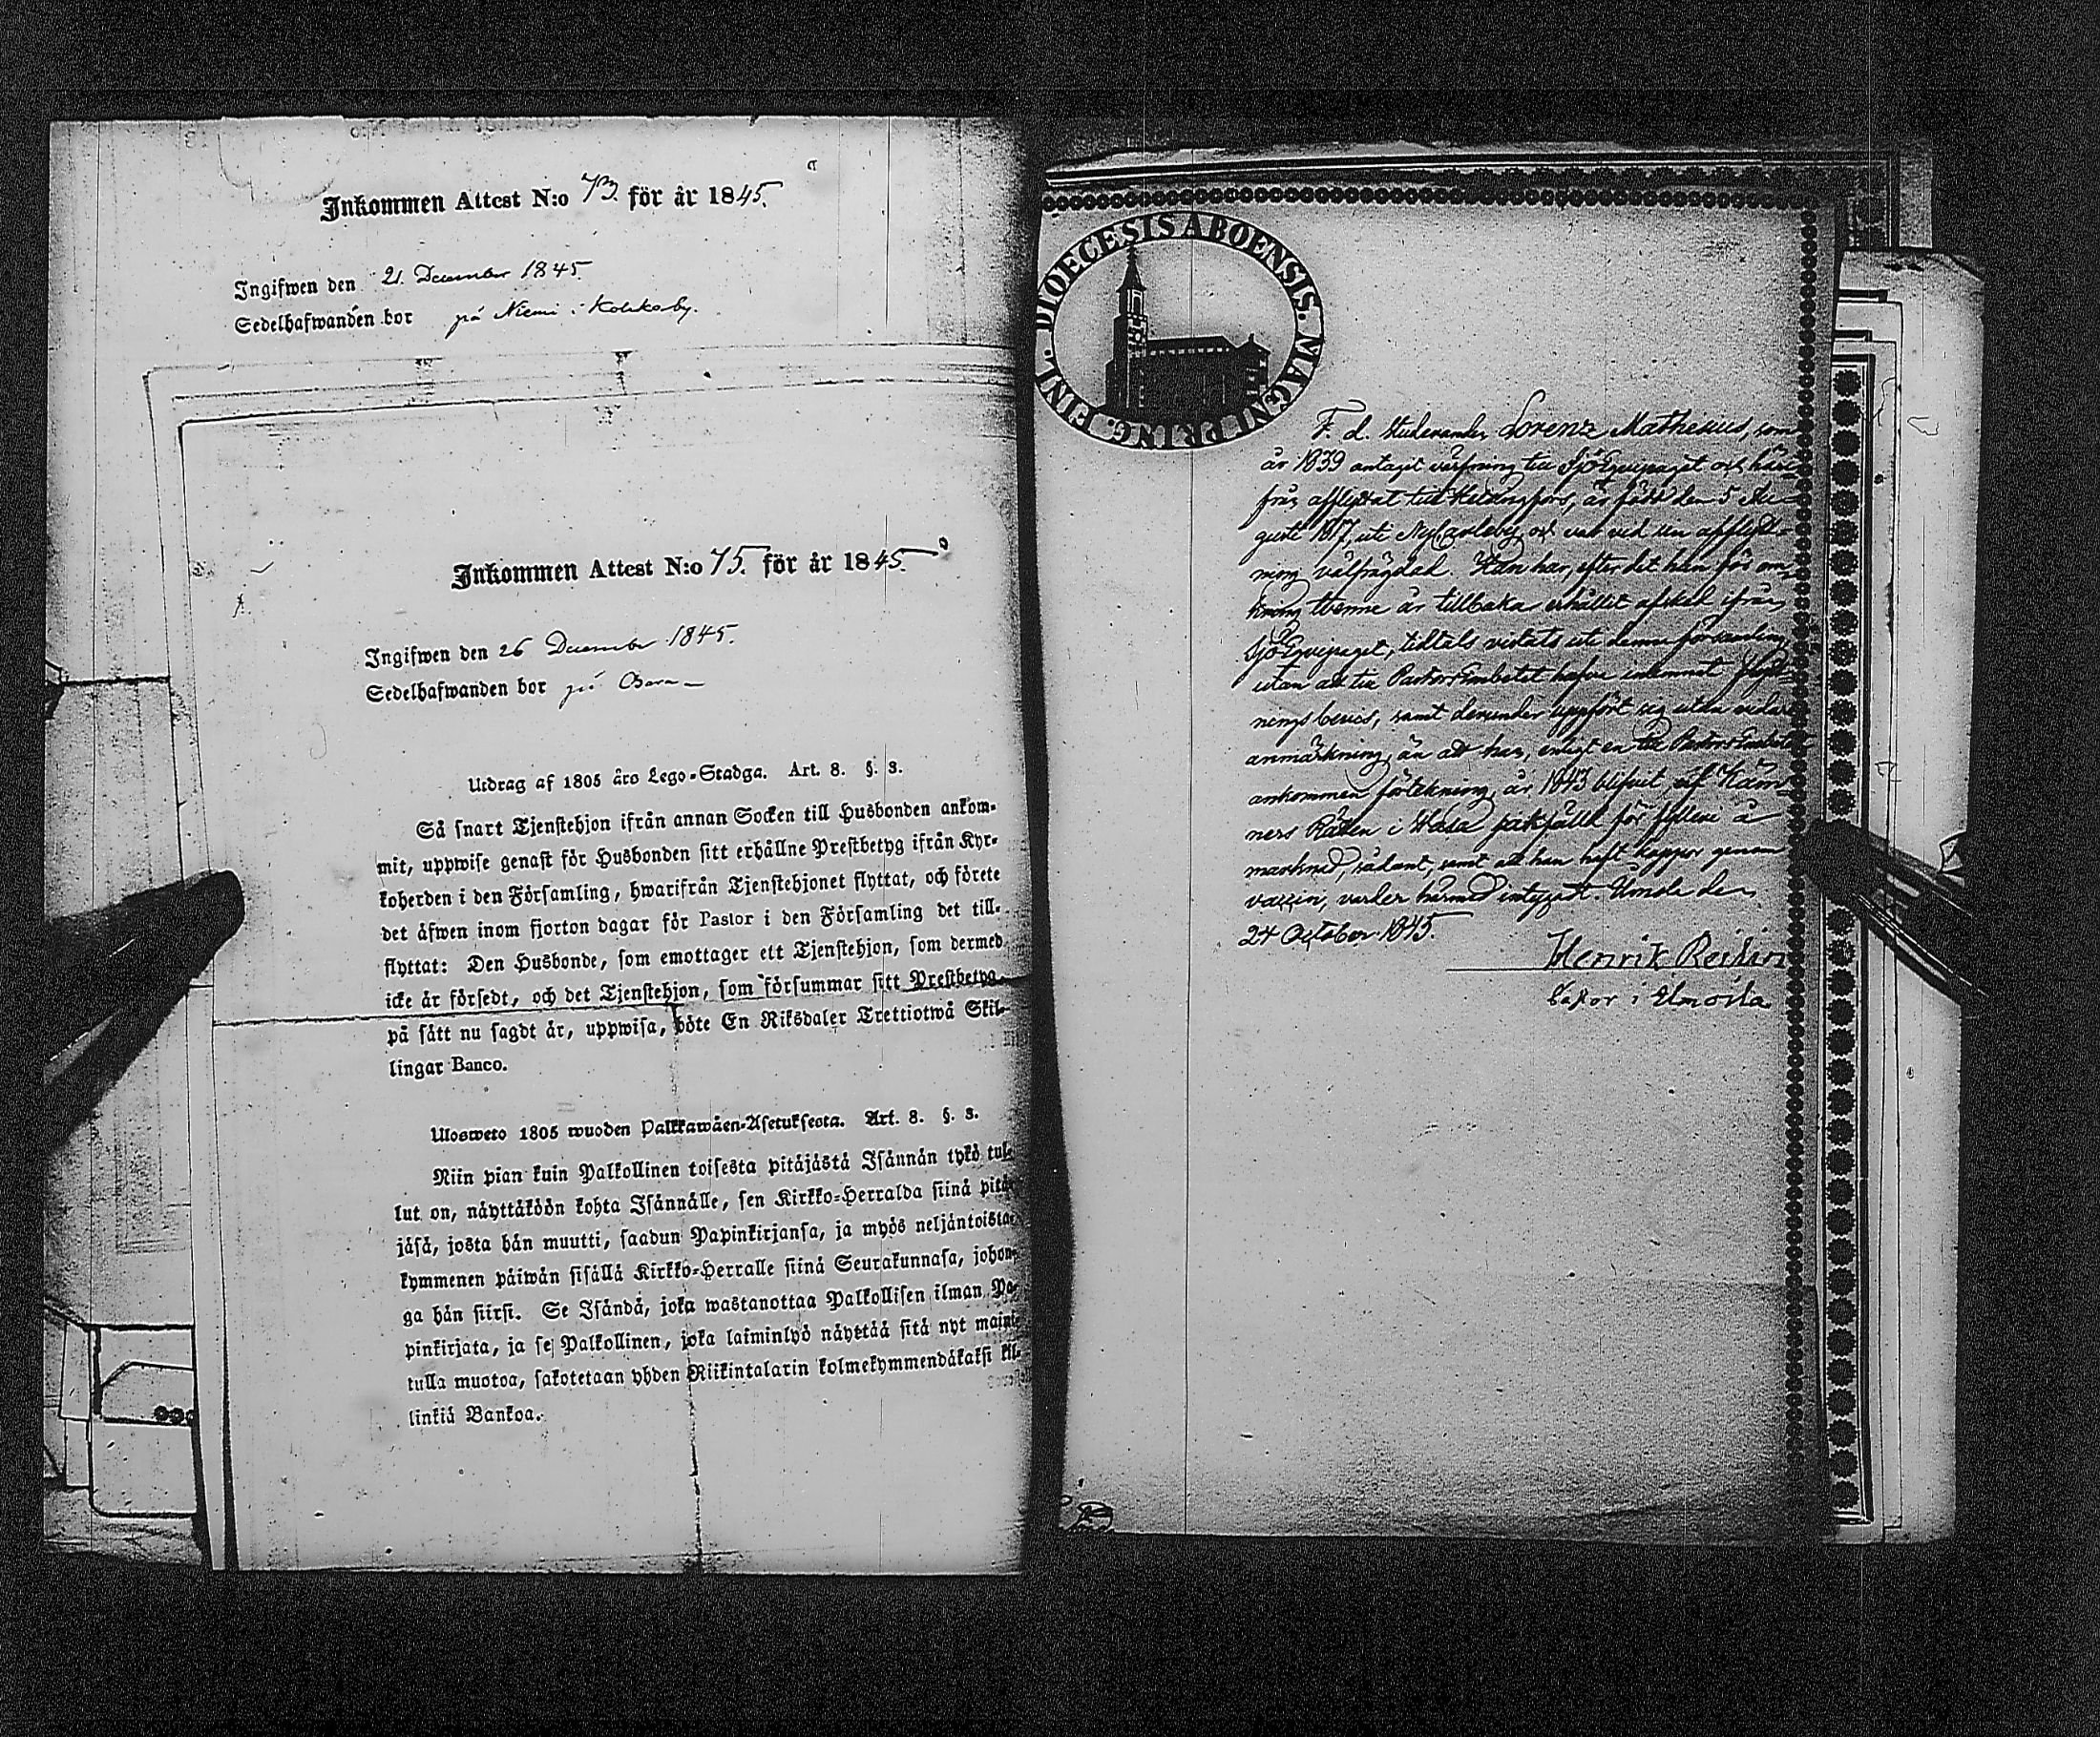 Inkommen Attest N:o 73. för år 1845.
Ingifwen den 21. December 1845
Sedelhafwanden bor på Niemi i Kolckoby.
Inkommen Attest N:o 75. för år 1845.
Ingifwen den 26 December 1845.
Sedelhafwanden bor på
Utdrag af 1805 års Lego-Stadga. Art. 8. §. 3.
Så snart Tjenstehjon ifrån annan Socken till Husbonden ankom-
mit, uppwise genast för Husbonden sitt erhållne Prestbetyg ifrån Kyr-
koherden i den Församling, hwarifrån Tjenstehjonet flyttat, och förete
det äfwen inom fjorton dagar för Pastor i den Församling det till-
flyttat: Den Husbonde, som emottager ett Tjenstehjon, som dermed
icke är försedt, och det Tjenstehjon, som försummar sitt Prestbetyg,
på sätt nu sagdt är, uppwisa, böte En Riksdaler Trettiotwå Skil-
lingar Banco.
Ulosweto 1805 wuoden Palkkawäen-Asetuksesta. Art. 8. §. 3.
Niin pian kuin Palkollinen toisesta pitäjästä Isännän tykö tul-
lut on, näyttäköön kohta Isännälle, sen Kirkko-Herralda siinä pitä-
jäsä, josta hän muutti, saadun Papinkirjansa, ja myös neljäntoista-
kymmenen päiwän sisällä Kirkko-Herralle siinä Seurakunnasa, johon-
ga hän siirsi. Se Isändä, joka wastanottaa Palkollisen ilman Pa-
pinkirjata, ja se Palkollinen, joka laiminlyö näyttää sitä nyt maini-
tulla muotoa, sakotetaan yhden Riikintalarin kolmekymmendäkaksi kil-
linkiä Bankoa.
DIOECESIS ABOENSIS. MAGNI PRINC. FINL.
F. d. Studeranden Lorenz Mathesius, som
år 1839 antagit värfning till SjöEquipaget och här-
från afflyttat till Helsingfors, är född den 5 Au-
gusti 1817, uti NyCarleby, och var vid sin afflytt-
ning välfrägdad. Han har, efter det han för om-
kring tvenne år tillbaka erhållit afsked ifrån
SjöEquipaget, tidtals vistats uti denna församling
utan att till PastorsEmbetet hafva inlemnat flytt-
ningsbevis, samt derunder uppfört sig utan vidare
anmärkning, än att han, enligt en till PastorsEmbetet
ankommen förtekning, år 1843 blifvit af Käm-
ners Rätten i Wasa sakfälld för fylleri å
marknad, sådant, samt att han haft koppor genom
vaccin, varder härmed intygadt. Ilmola den
24 October 1845.
Henrik
i Ilmola